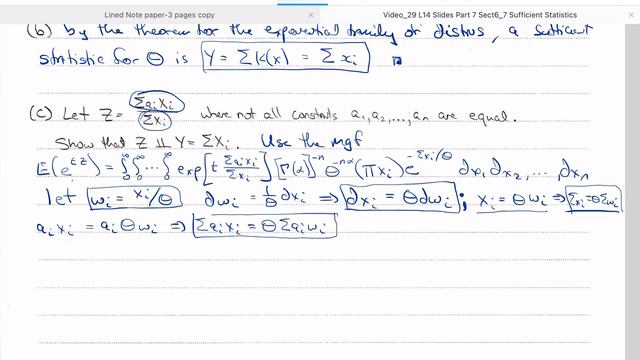 Lined Note paper-3 pages copy
Video_29 L14 Slides Part 7 Sect6_7 Sufficient Statistics
(b) By the theorem for the exponential family of distns, a sufficient
statistic for θ is Y = ΣK(x) = Σxi
(c) Let Z = Σaixi / Σxi where not all constants a1, a2, ..., an are equal.
Show that Z ⫫ Y = ΣXi. Use the mgf
E(e^{tZ}) = ∫₀^∞ ∫₀^∞ ... ∫₀^∞ exp[t Σaixi / Σxi] [Γ(α)]^{-n} θ^{-nα} (πxi) e^{-Σxi/θ} dx1 dx2, ..., dxn
let wi = xi/θ dwi = 1/θ dxi ⇒ dxi = θdwi ; xi = θwi ⇒ Σxi = θΣwi
aixi = aiθwi ⇒ Σaixi = θΣaiwi